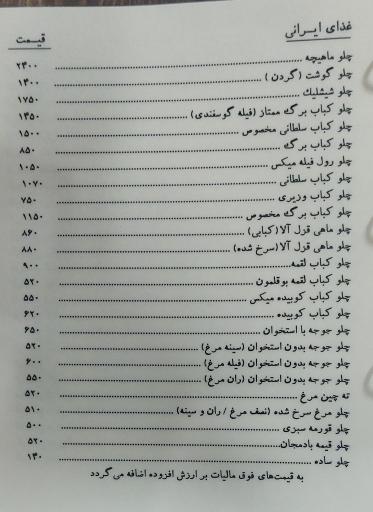 غذای ایرانی قیمت
چلو ماهیچه ۲۴۰۰
چلو گوشت (گردن) ۱۴۰۰
چلو شیشلیك ۱۷۵۰
چلو کباب برگ ممتاز (فیله گوسفندی) ۱۴۵۰
چلو کباب سلطانی مخصوص ۱۵۰۰
چلو کباب برگ ۸۵۰
چلو رول فیله میکس ۱۰۵۰
چلو کباب سلطانی ۱۰۷۰
چلو کباب وزیری ۷۵۰
چلو کباب برگ مخصوص ۱۱۵۰
چلو ماهی قزل آلا (کبابی) ۸۶۰
چلو ماهی قزل آلا (سرخ شده) ۸۸۰
چلو کباب لقمه ۹۰۰
چلو کباب لقمه بوقلمون ۵۲۰
چلو کباب کوبیده میکس ۵۵۰
چلو کباب کوبیده ۶۲۰
چلو جوجه با استخوان ۶۵۰
چلو جوجه بدون استخوان (سینه مرغ) ۵۲۰
چلو جوجه بدون استخوان (فیله مرغ) ۶۰۰
چلو جوجه بدون استخوان (ران مرغ) ۵۵۰
ته چین مرغ ۵۲۰
چلو مرغ سرخ شده (نصف مرغ / ران و سینه) ۵۱۰
چلو قورمه سبزی ۵۰۰
چلو قیمه بادمجان ۵۲۰
چلو ساده ۱۴۰
به قیمت‌های فوق مالیات بر ارزش افزوده اضافه می گردد